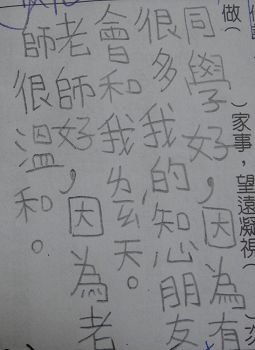 做( )家事，望遠凝視(
同學好，因為有
很多我的知心朋友
會和我ㄌㄧㄠˊ天。
老師好，因為老
師很溫和。